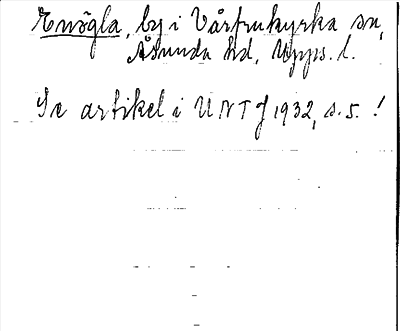 Enögla, by i Vårfrukyrka sn,
Åsunda hd, Upps. l.
Se artikel i UNT 1932, s. 5. !